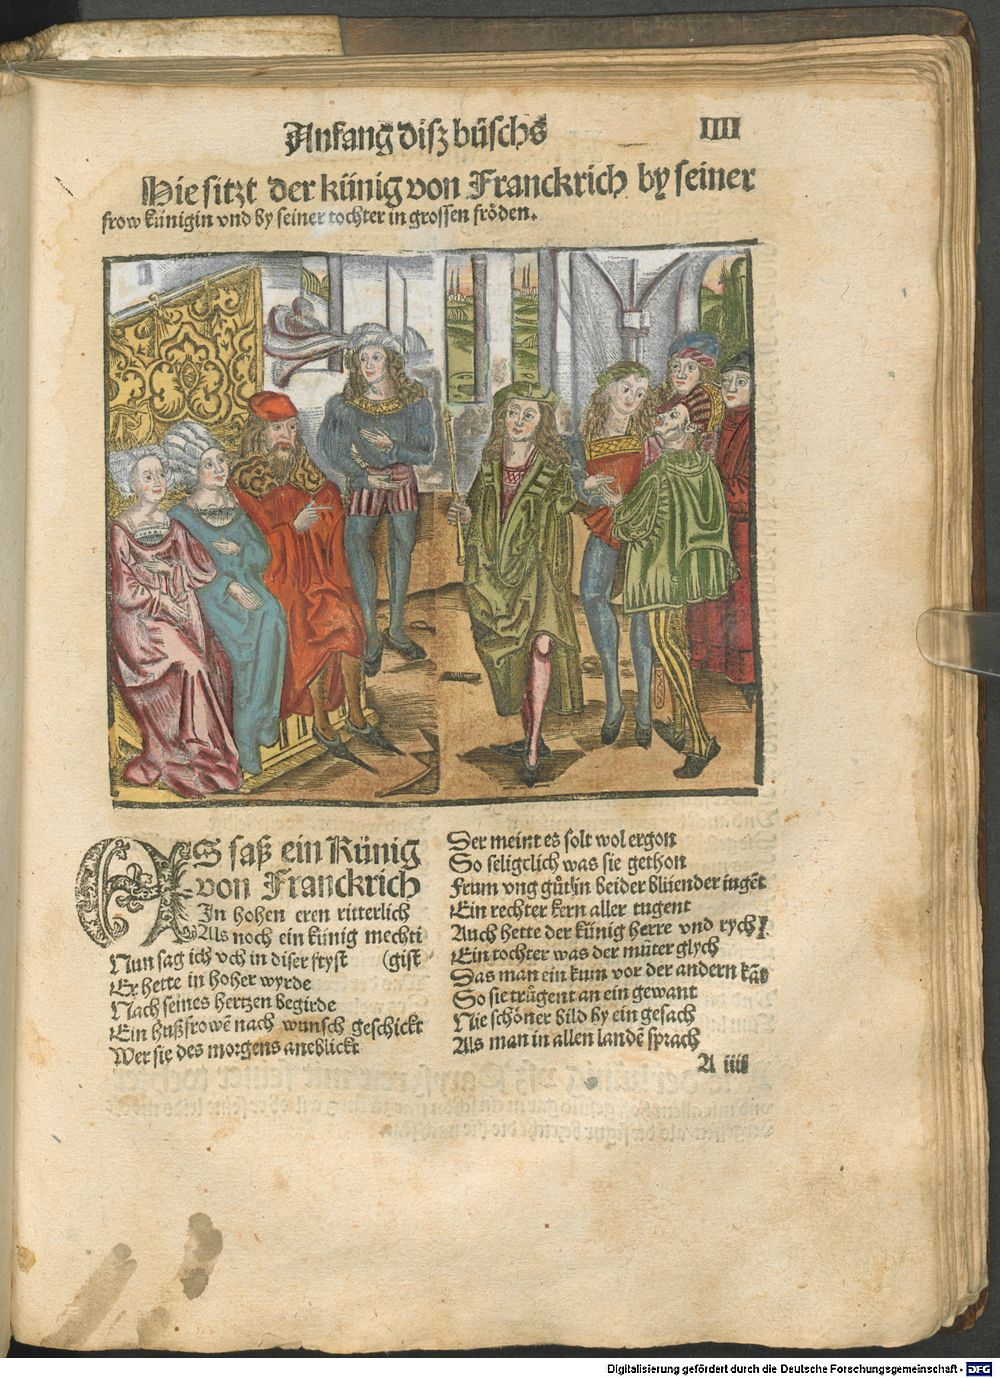 Anfang disz büschs
IIII
Hie sitzt der künig von Franckrich by seiner
frow künigin vnd by seiner tochter in grossen fröden.
ES saß ein Künig
von Franckrich
In hohen eren ritterlich
Als noch ein künig mechti
Nun sag ich vch in diser fryst (gist
Er hette in hoher wyrde
Nach seines hertzen begirde
Ein hußfrowē nach wunsch geschickt
Wer sie des morgens aneblickt
Der meint es solt wol ergon
So seligclich was sie gethon
Frum vng gůtlin beider blüender iugēt
Ein rechter kern aller tugent
Auch hette der künig herre vnd rych
Ein tochter was der můter glych
Das man ein kum vor der andern kāt
So sie trůgent an ein gewant
Nie schöner bild by ein gesach
Als man in allen landē sprach
A iiii
Digitalisierung gefördert durch die Deutsche Forschungsgemeinschaft - DFG